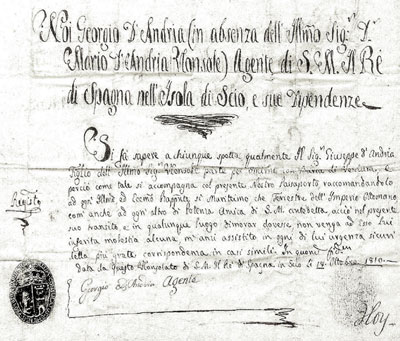 Noi Georgio D'Andria (in absenza dell' Illmo Sig.r D.
Mario D'Andria Consote) Agente di S. M. Il Ré
di Spagna nell'Isola di Scio, e sue Dipendenze
Si fà sapere a chiunque spetta qualmente Il Sig.r Giuseppe d'Andria
Figlio dell' Illmo Sig.r Console parte per
perciò come tale si accompagna col presente Nostro Passaporto raccomandandolo
ad ogni Illmo ed Eccmo Rappnte si Marittimo che Terrestre dell'Imperio Ottomano
com'anche ad ogni altro di Potenza Amica di S. M. acciò nel presente
suo transito, e in qualunque luogo dimorar dovesse non venga ad esso Lui
inferita molestia alcuna m'anzi assistito in ogni di lui urgenza sicuri
della più grata corrispondenza in casi simili. In quorum fidem
data da Questo Consolato di S. M. Il Ré di Spagna in Scio li 18. Ottobre 1810.
Registo
Georgio D'Andria Agente